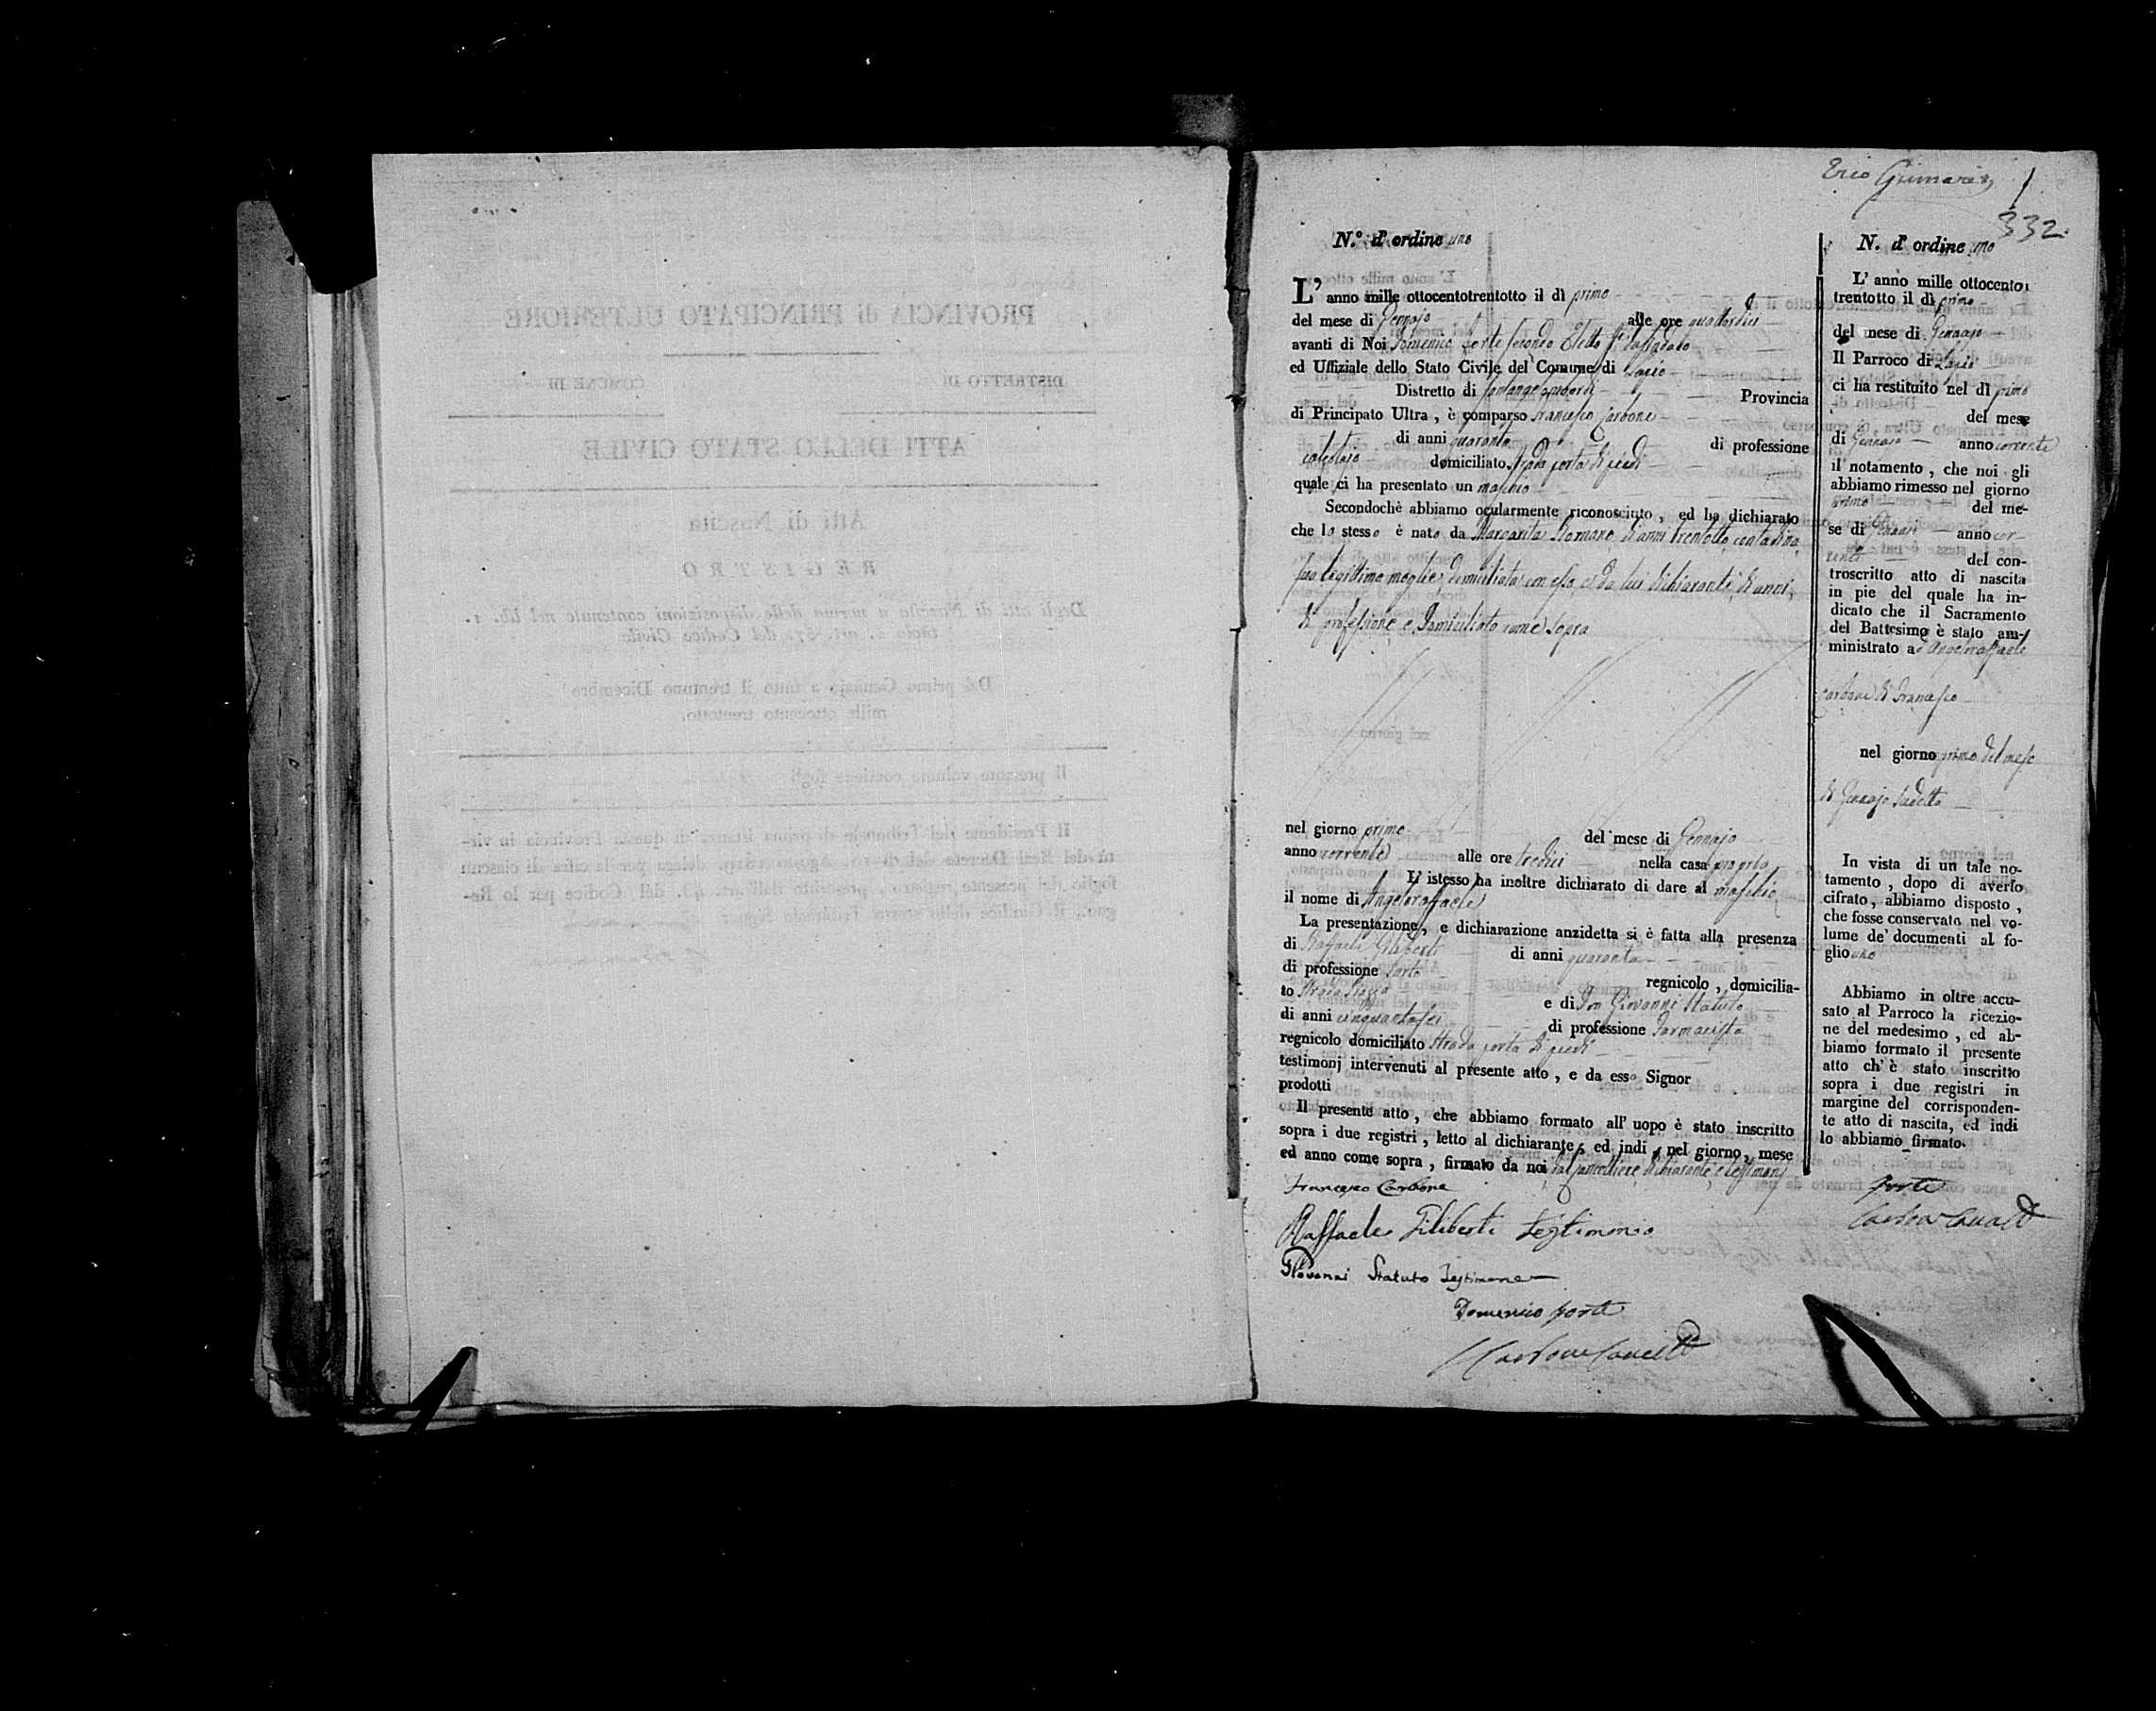 1
332.
N.º d' ordine uno
L' anno mille ottocentotrentotto il dì primo
del mese di Gennajo alle ore quattordici
avanti di Noi Domenico Forte secondo Eletto
ed Uffiziale dello Stato Civile del Comune di Lapio
Distretto di Provincia
di Principato Ultra , è comparso Francesco Carbone
di anni quaranta di professione
calzolajo domiciliato strada porta di piedi
quale ci ha presentato un maschio
Secondochè abbiamo ocularmente riconosciuto , ed ha dichiarato
che lo stesso è nato da Margarita Romano, di anni trentotto, contadina,
sua legittima moglie, domiciliata con esso, e da lui dichiarante, di anni,
di professione, e domiciliato come sopra
nel giorno primo del mese di Gennajo
anno corrente alle ore tredici nella casa propria
L' istesso ha inoltre dichiarato di dare al maschio
il nome di Angeloraffaele
La presentazione, e dichiarazione anzidetta si è fatta alla presenza
di Raffaele Filiberti di anni quaranta
di professione Sarto regnicolo , domicilia-
to Strada Piazza e di Don Giovanni Statuto
di anni cinquantasei di professione Farmacista
regnicolo domiciliato Strada porta di piedi
testimonj intervenuti al presente atto , e da esso Signor
prodotti
Il presente atto , che abbiamo formato all' uopo è stato inscritto
sopra i due registri , letto al dichiarante, ed indi , nel giorno, mese
ed anno come sopra , firmato da noi, dal Cancelliere, dichiarante, e testimonj
Francesco Carbone
Raffaele Filiberti testimonio
Giovanni Statuto Testimone
Domenico Forte
Carbone
N. d' ordine uno
L' anno mille ottocento
trentotto il dì primo
del mese di Gennajo
Il Parroco di Lapio
ci ha restituito nel dì primo
del mese
di Gennajo anno corrente
il notamento , che noi gli
abbiamo rimesso nel giorno
primo del me-
se di Gennajo anno cor-
rente del con-
troscritto atto di nascita
in pie del quale ha in-
dicato che il Sacramento
del Battesimo è stato am-
ministrato ad Angeloraffaele
Carbone di Francesco
nel giorno primo del mese
di Gennajo sudetto
In vista di un tale no-
tamento , dopo di averlo
cifrato , abbiamo disposto ,
che fosse conservato nel vo-
lume de' documenti al fo-
glio uno
Abbiamo in oltre accu-
sato al Parroco la ricezio-
ne del medesimo , ed ab-
biamo formato il presente
atto ch' è stato inscritto
sopra i due registri in
margine del corrisponden-
te atto di nascita, ed indi
lo abbiamo firmato.
Forte
Carbone
PROVINCIA di PRINCIPATO ULTERIORE
DISTRETTO DI COMUNE DI
ATTI DELLO STATO CIVILE
Atti di Nascita
REGISTRO
Degli atti di Nascita a norma delle disposizioni contenute nel lib. 1.
Dal primo Gennajo a tutto il trentuno Dicembre
mille ottocento trentotto.
Il presente volume contiene fogli